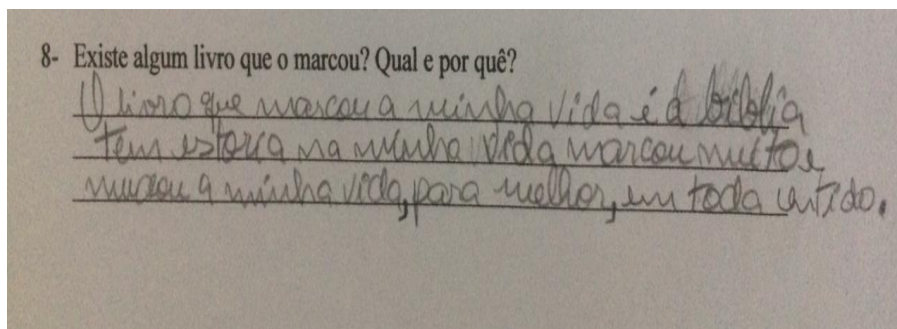 8- Existe algum livro que o marcou? Qual e por quê?
O livro que marcou a minha vida é a biblia
tem estoria na minha vida marcou muito e
mudou a minha vida, para melhor, em toda